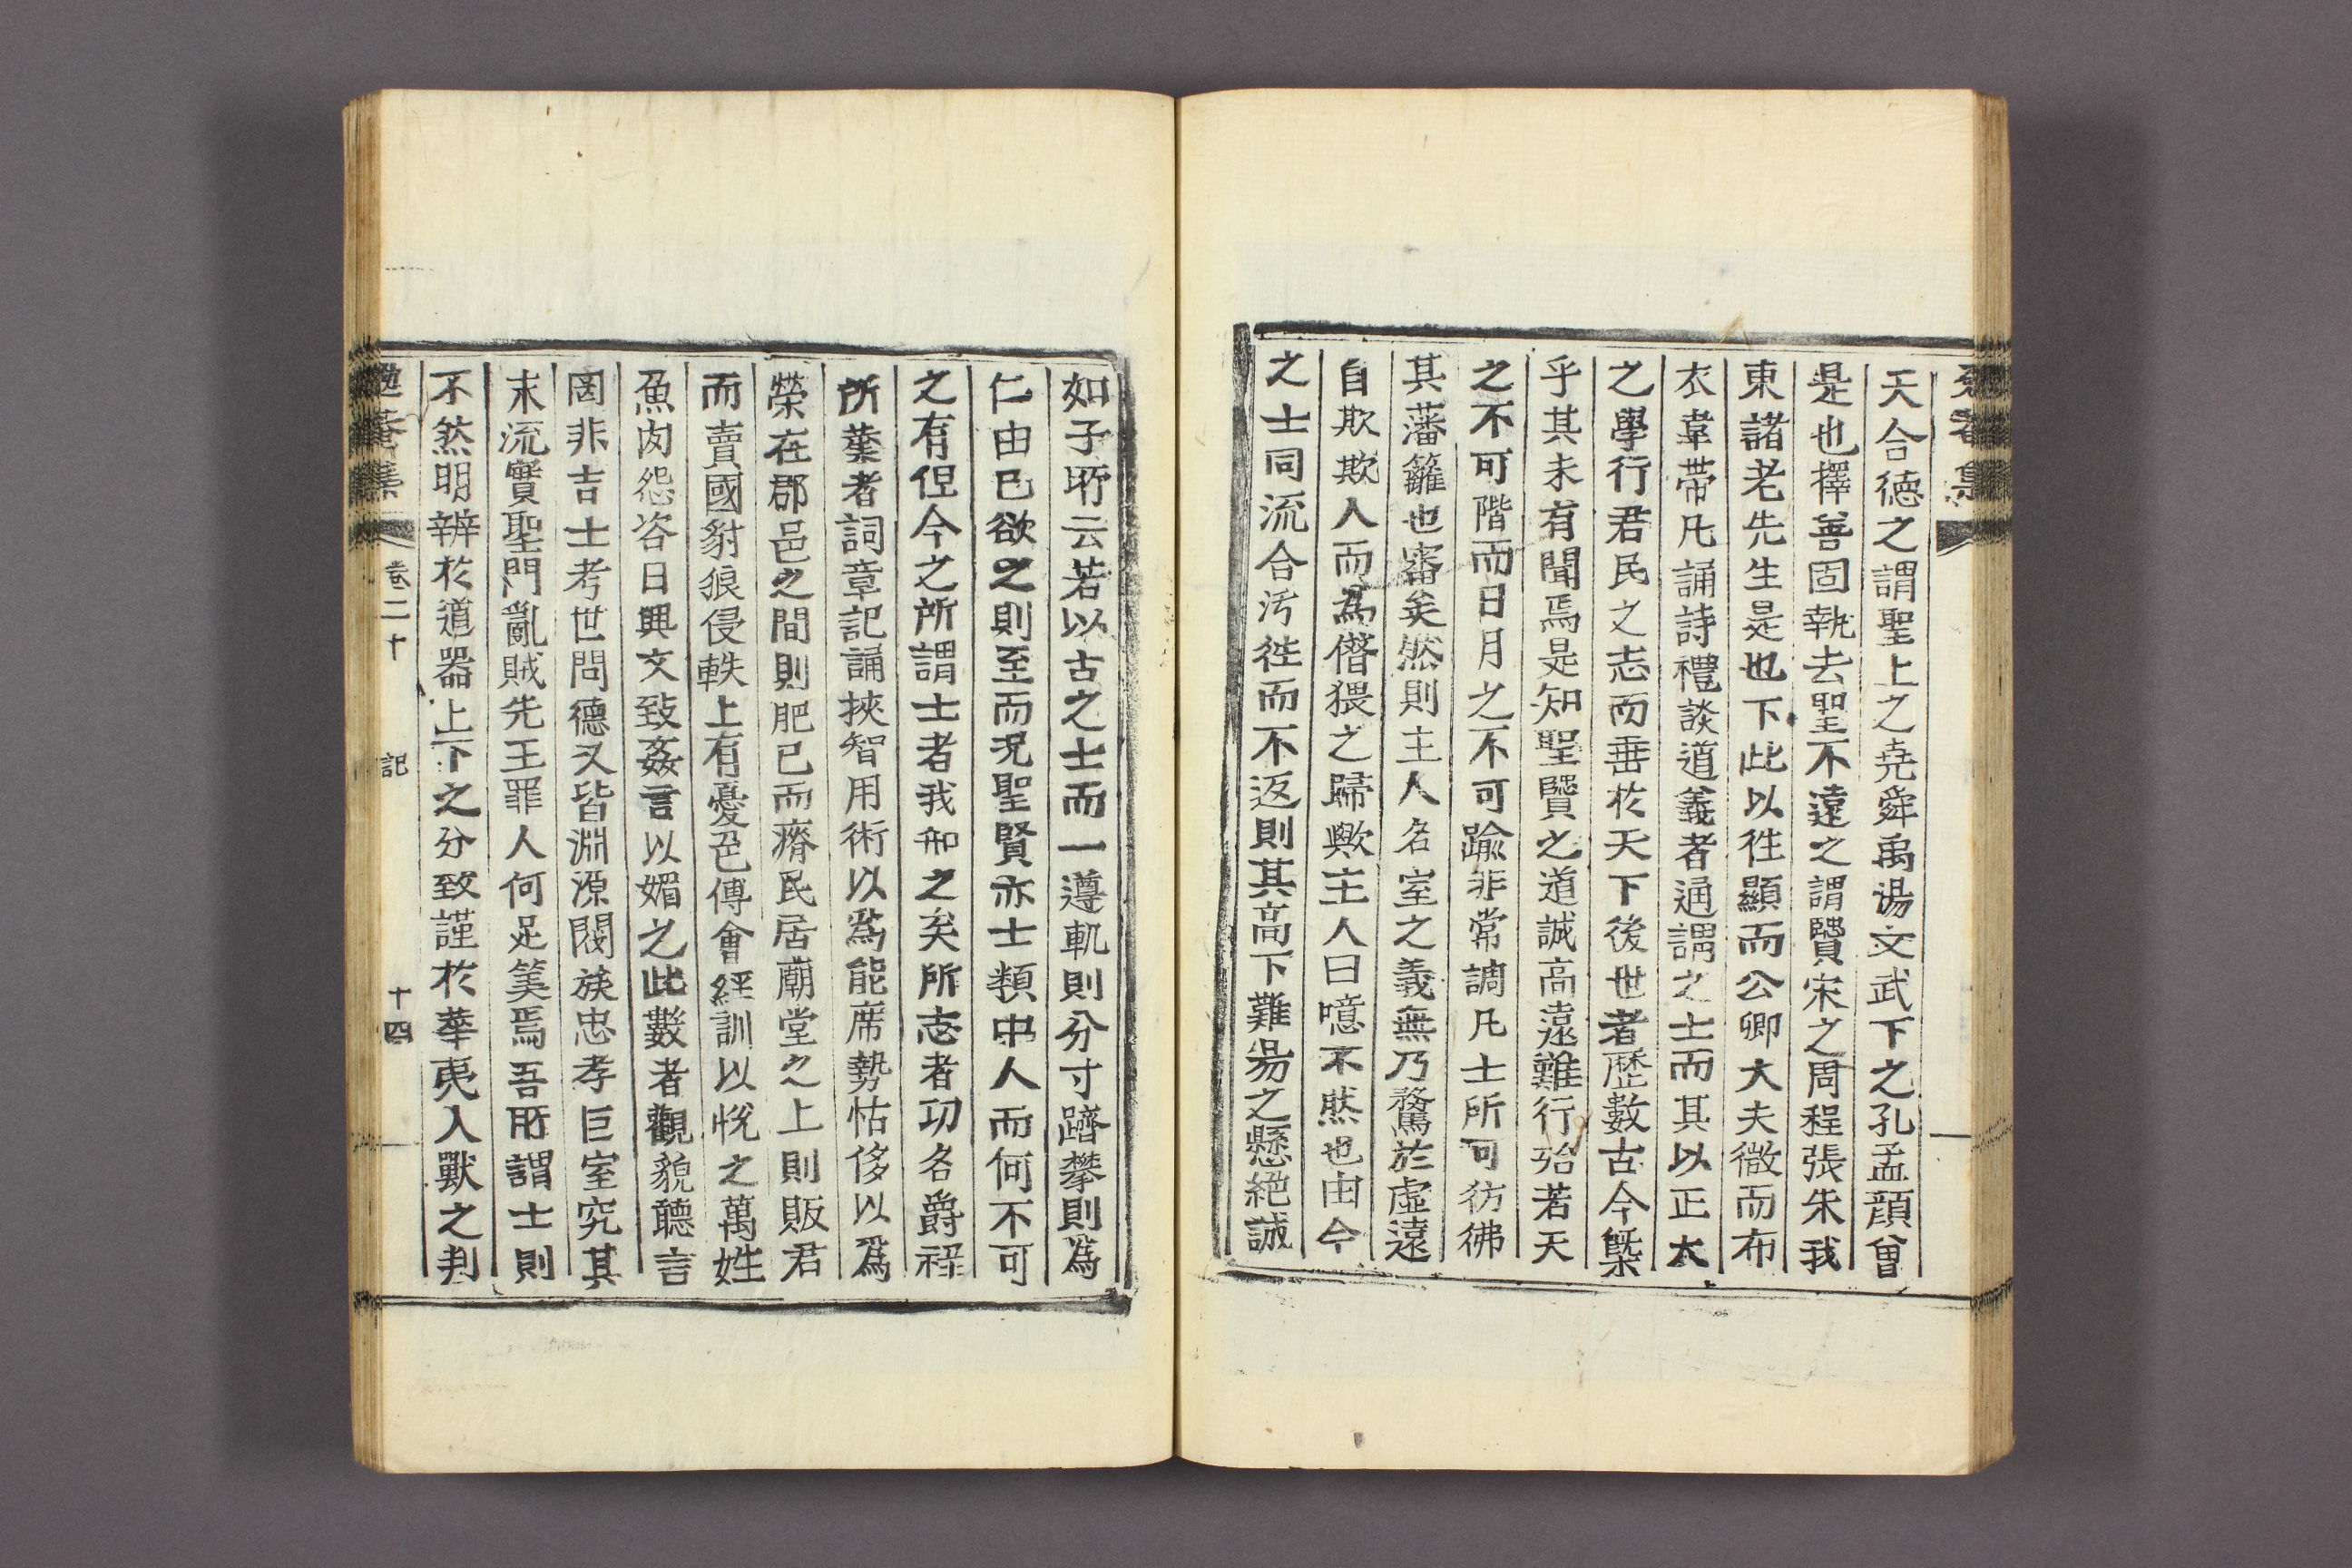 勉菴集
天合德之謂聖上之堯舜禹湯文武下之孔孟顔曾
是也擇善固執去聖不遠之謂賢宋之周程張朱我
東諸老先生是也下此以徃顯而公卿大夫微而布
衣韋帶凡誦詩禮談道義者通謂之士而其以正大
之學行君民之志而垂於天下後世者歷數古今槩
乎其未有聞焉是知聖賢之道誠高遠難行殆若天
之不可階而日月之不可踰非常調凡士所可彷彿
其藩籬也審矣然則主人名室之義無乃騖於虛遠
自欺欺人而爲僭猥之歸歟主人曰噫不然也由今
之士同流合汚徃而不返則其高下難易之懸絶誠
如子所云若以古之士而一遵軌則分寸躋攀則爲
仁由己欲之則至而况聖賢亦士類中人而何不可
之有但今之所謂士者我知之矣所志者功名爵祿
所葉者詞章記誦挾智用術以爲能席勢怙侈以爲
榮在郡邑之間則肥己而瘠民居廟堂之上則販君
而賣國豺狼侵軼上有憂色傅會經訓以悅之萬姓
魚肉怨咨日興文致姦言以媚之此數者觀貌聽言
罔非吉士考世問德又皆淵源閥族忠孝巨室究其
末流實聖門亂賊先王罪人何足筭焉吾所謂士則
不然明辨於道器上下之分致謹於華夷人獸之判
勉菴集 卷二十 記 十四